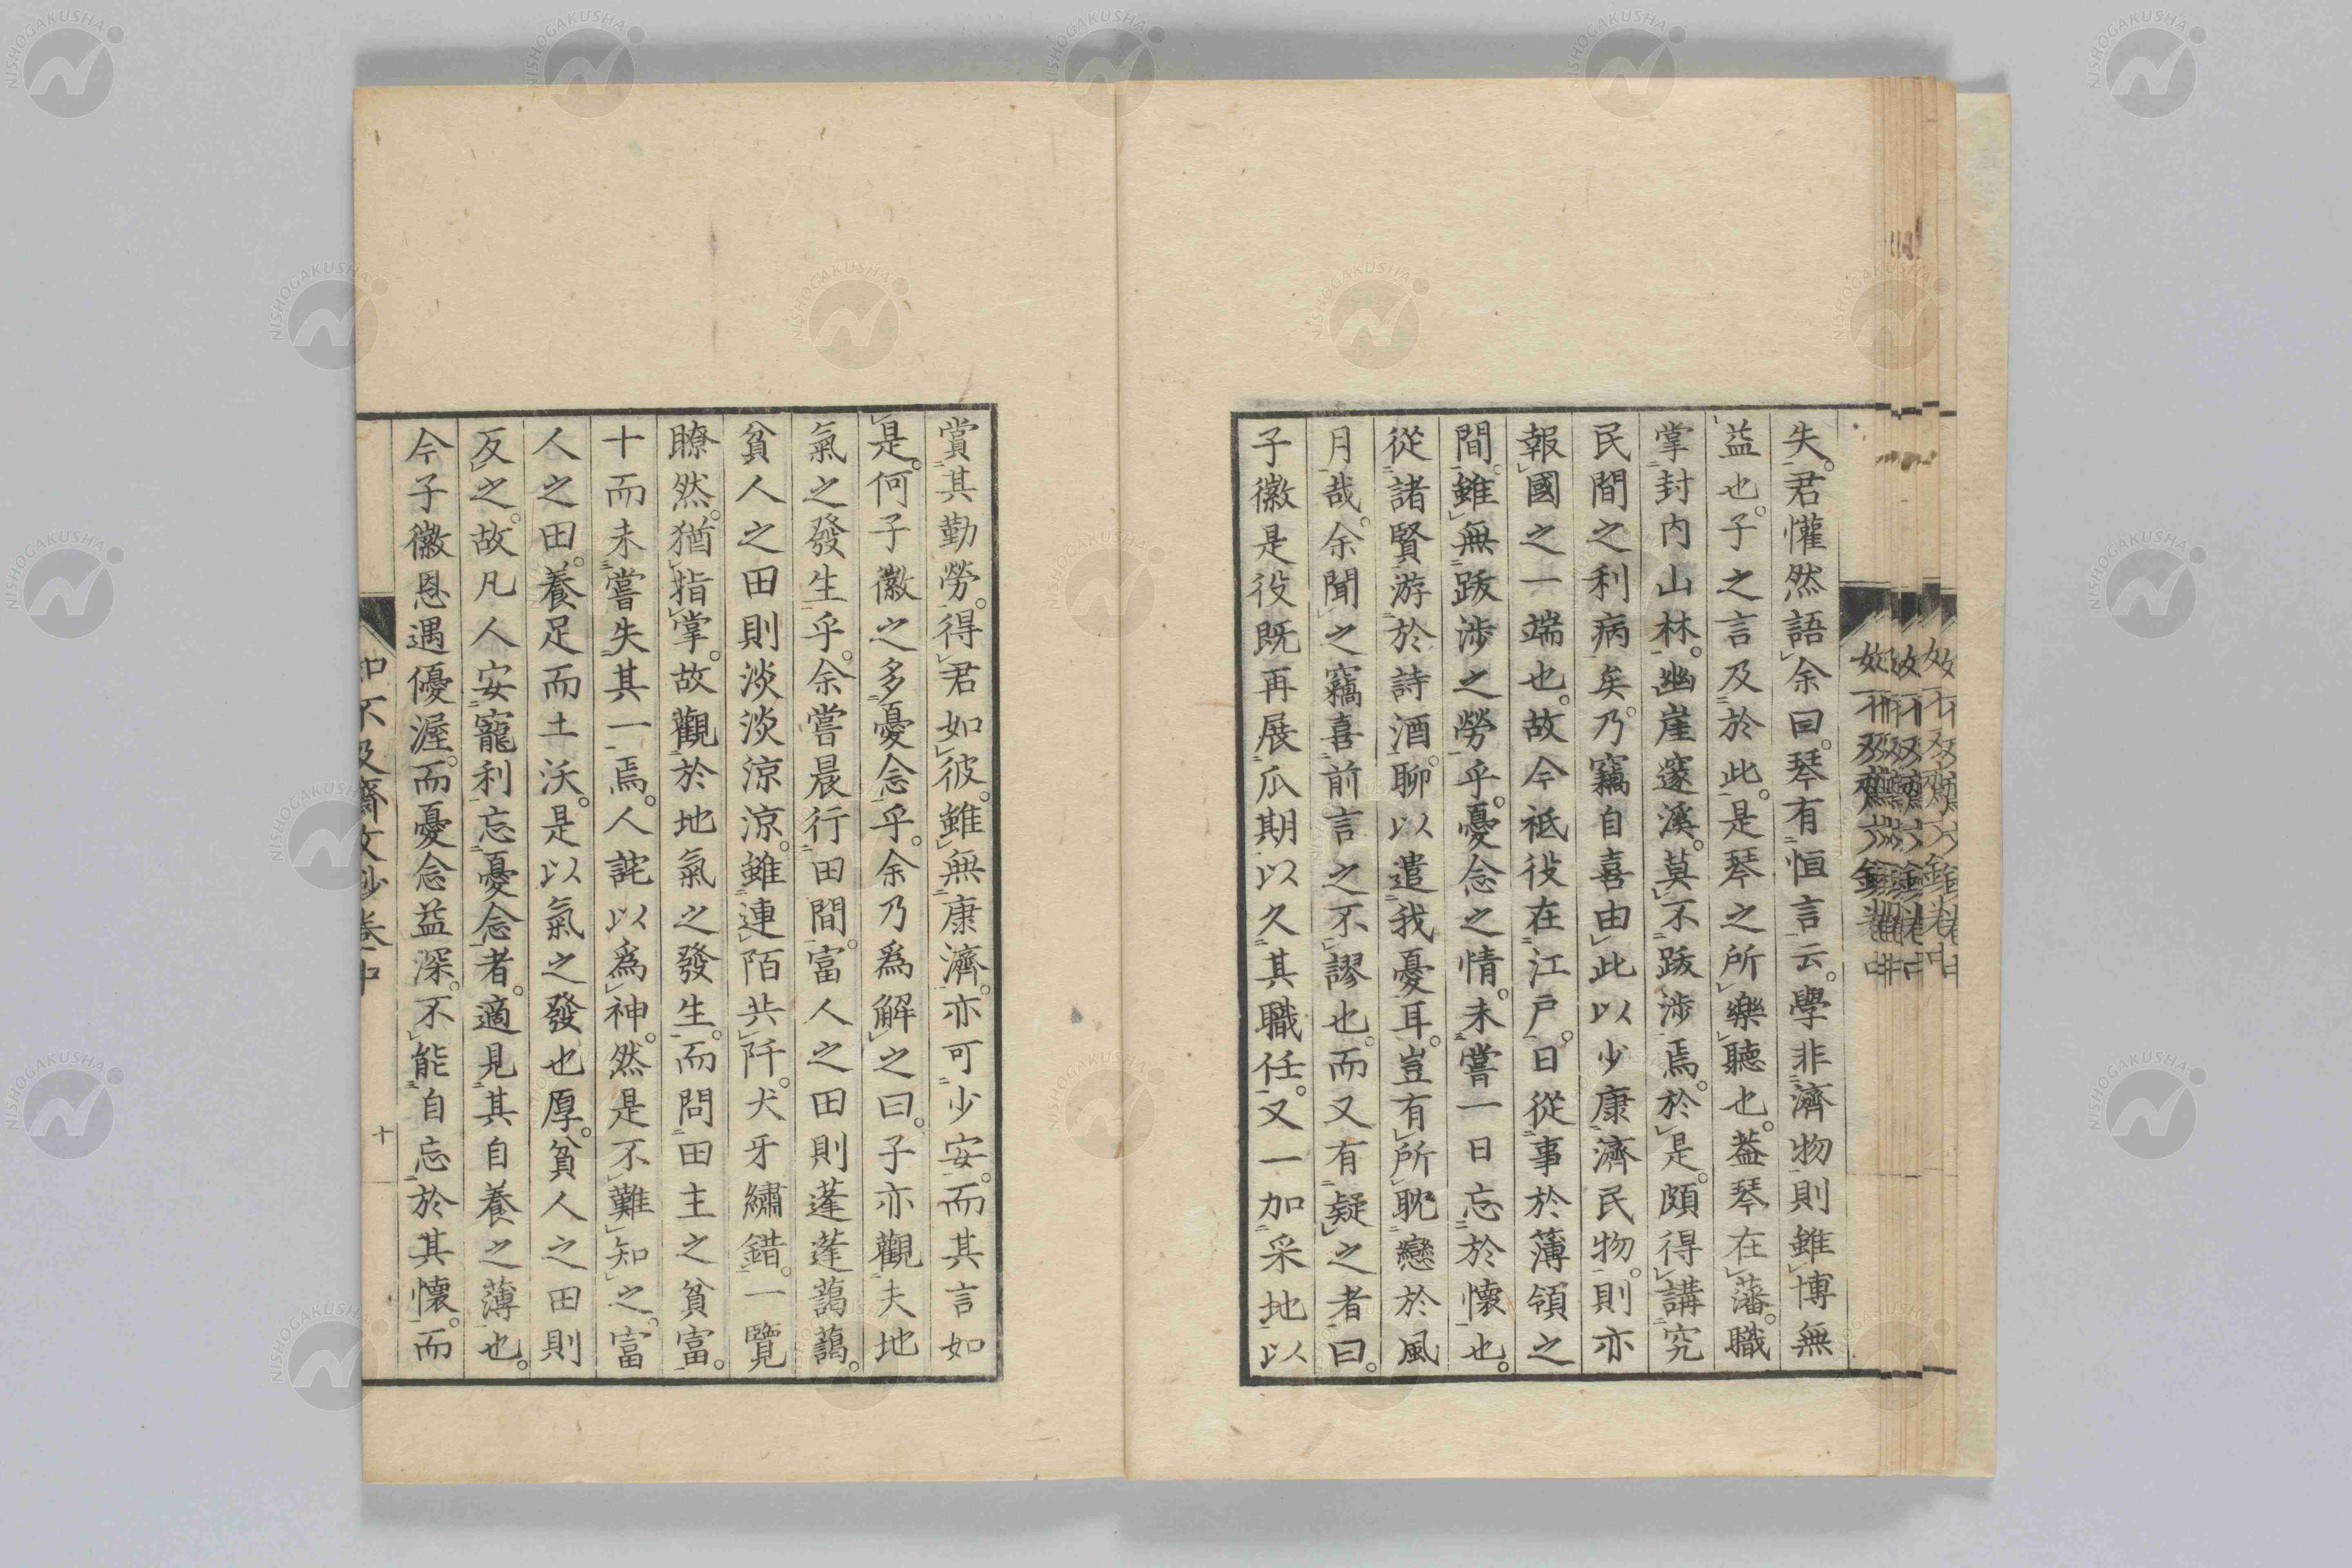 失。君懽然語余曰。琴有恒言云。學非濟物則雖博無
益也。子之言及於此。是琴之所樂聽也。蓋琴在藩。職
掌封内山林。幽崖邃溪。莫不跋涉焉。於是。頗得講究
民間之利病矣。乃竊自喜由此以少康濟民物。則亦
報國之一端也。故今祗役在江戸。日從事於薄領之
間。雖無跋涉之勞乎。憂念之情。未嘗一日忘於懷也。
從諸賢游於詩酒。聊以遣我憂耳。豈有所耽戀於風
月哉。余聞之竊喜前言之不謬也。而又有疑之者曰。
子徽是役既再展瓜期以久其職任。又一加采地以
賞其勤勞。得君如彼。雖無康濟。亦可少安。而其言如
是。何子徽之多憂念乎。余乃爲解之曰。子亦觀夫地
氣之發生乎。余嘗晨行田間。富人之田則蓬蓬藹藹。
貧人之田則淡淡涼涼。雖連陌共阡。犬牙繡錯。一覽
瞭然。猶指掌。故觀於地氣之發生。而問田主之貧富。
十而未嘗失其一焉。人詫以爲神。然是不難知之。富
人之田。養足而土沃。是以氣之發也厚。貧人之田則
反之。故凡人安寵利忘憂念者。適見其自養之薄也。
今子徽恩遇優渥。而憂念益深。不能自忘於其懷。而
如不及齋文鈔卷中
十
NISHOGAKUSHA